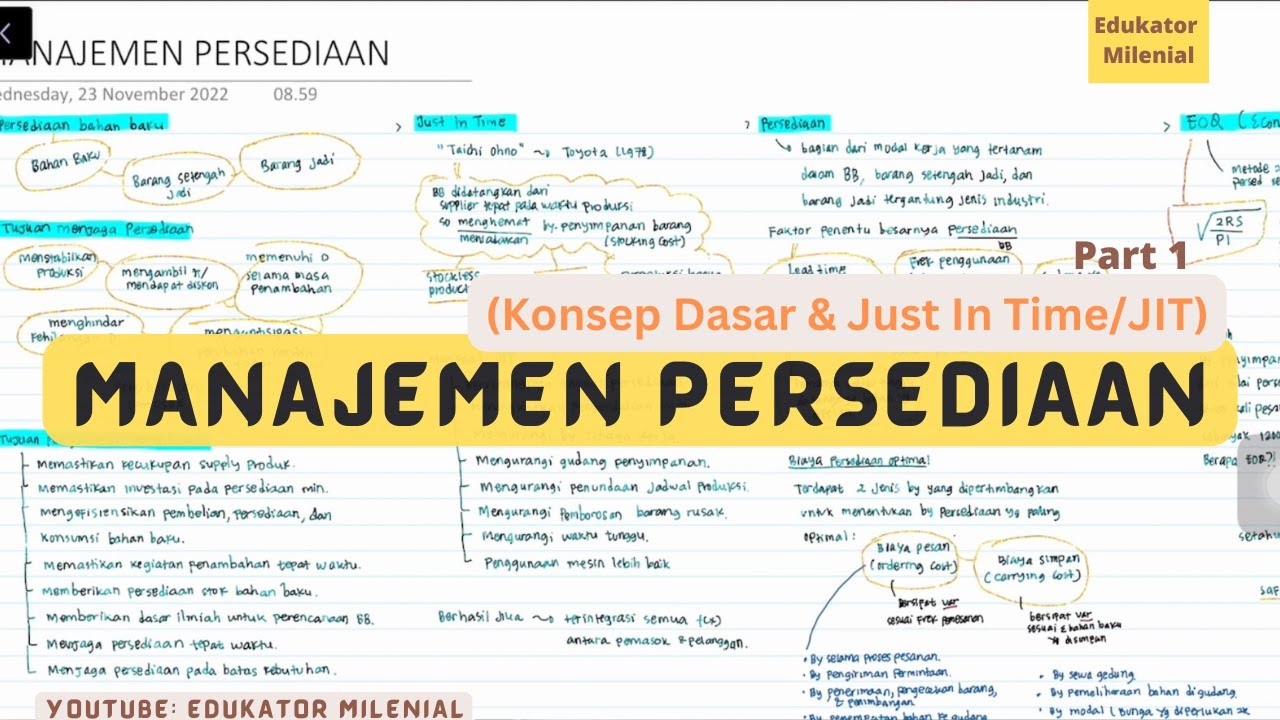 Edukator
Milenial
MANAJEMEN PERSEDIAAN
Wednesday, 23 November 2022 08.59
Persediaan bahan baku
Bahan Baku
Barang setengah
Jadi
Barang Jadi
Tujuan menjaga Persediaan
menstabilkan
Produksi
mengambil
mendapat diskon
memenuhi D
selama masa
penambahan
menghindar
Just In Time
"Taichi Ohno" ~> Toyota (1978)
BB didatangkan dari
supplier tepat pada waktu Produksi
so menghemat by. penyimpanan barang
(stocking cost)
Stockless
Persediaan
bagian dari modal kerja yang tertanam
dalam BB, barang setengah jadi, dan
barang jadi tergantung jenis industri.
Faktor penentu besarnya persediaan
BB
Lead time
Frek penggunaan
EOQ (Econ
metode
persed
√2RS
PI
Part 1
(Konsep Dasar & Just In Time/JIT)
MANAJEMEN PERSEDIAAN
Tujuan
Memastikan kecukupan supply produk.
Memastikan investasi pada persediaan min.
Mengefisiensikan pembelian, persediaan, dan
konsumsi bahan baku.
Memastikan kegiatan penambahan tepat waktu.
Memberikan persediaan stok bahan baku.
Memberikan dasar ilmiah untuk perencanaan BB.
Menjaga persediaan tepat waktu.
Menjaga persediaan pada batas kebutuhan.
Mengurangi gudang penyimpanan.
Mengurangi penundaan jadwal produksi.
Mengurangi pemborosan barang rusak.
Mengurangi waktu tunggu.
Penggunaan mesin lebih baik
Berhasil jika ~> terintegrasi semua f(x)
antara pemasok & pelanggan.
Biaya Persediaan Optimal
Terdapat 2 jenis by yang dipertimbangkan
untuk menentukan by persediaan yg paling
optimal:
Biaya pesan
(ordering cost)
Biaya simpan
(carrying cost)
Bersifat var
sesuai frek pemesanan
bersifat var
sesuai Σ bahan baku
yg disimpan
• By selama proses pesanan.
• By pengiriman permintaan.
• By penerimaan, pengecekan barang,
& penimbangan
• By penempatan bahan ke gudang
• By sewa gedung.
• By pemeliharaan bahan di gudang.
• By modal (bunga yg diperlukan
Berapa EOQ?!
YOUTUBE: EDUKATOR MILENIAL